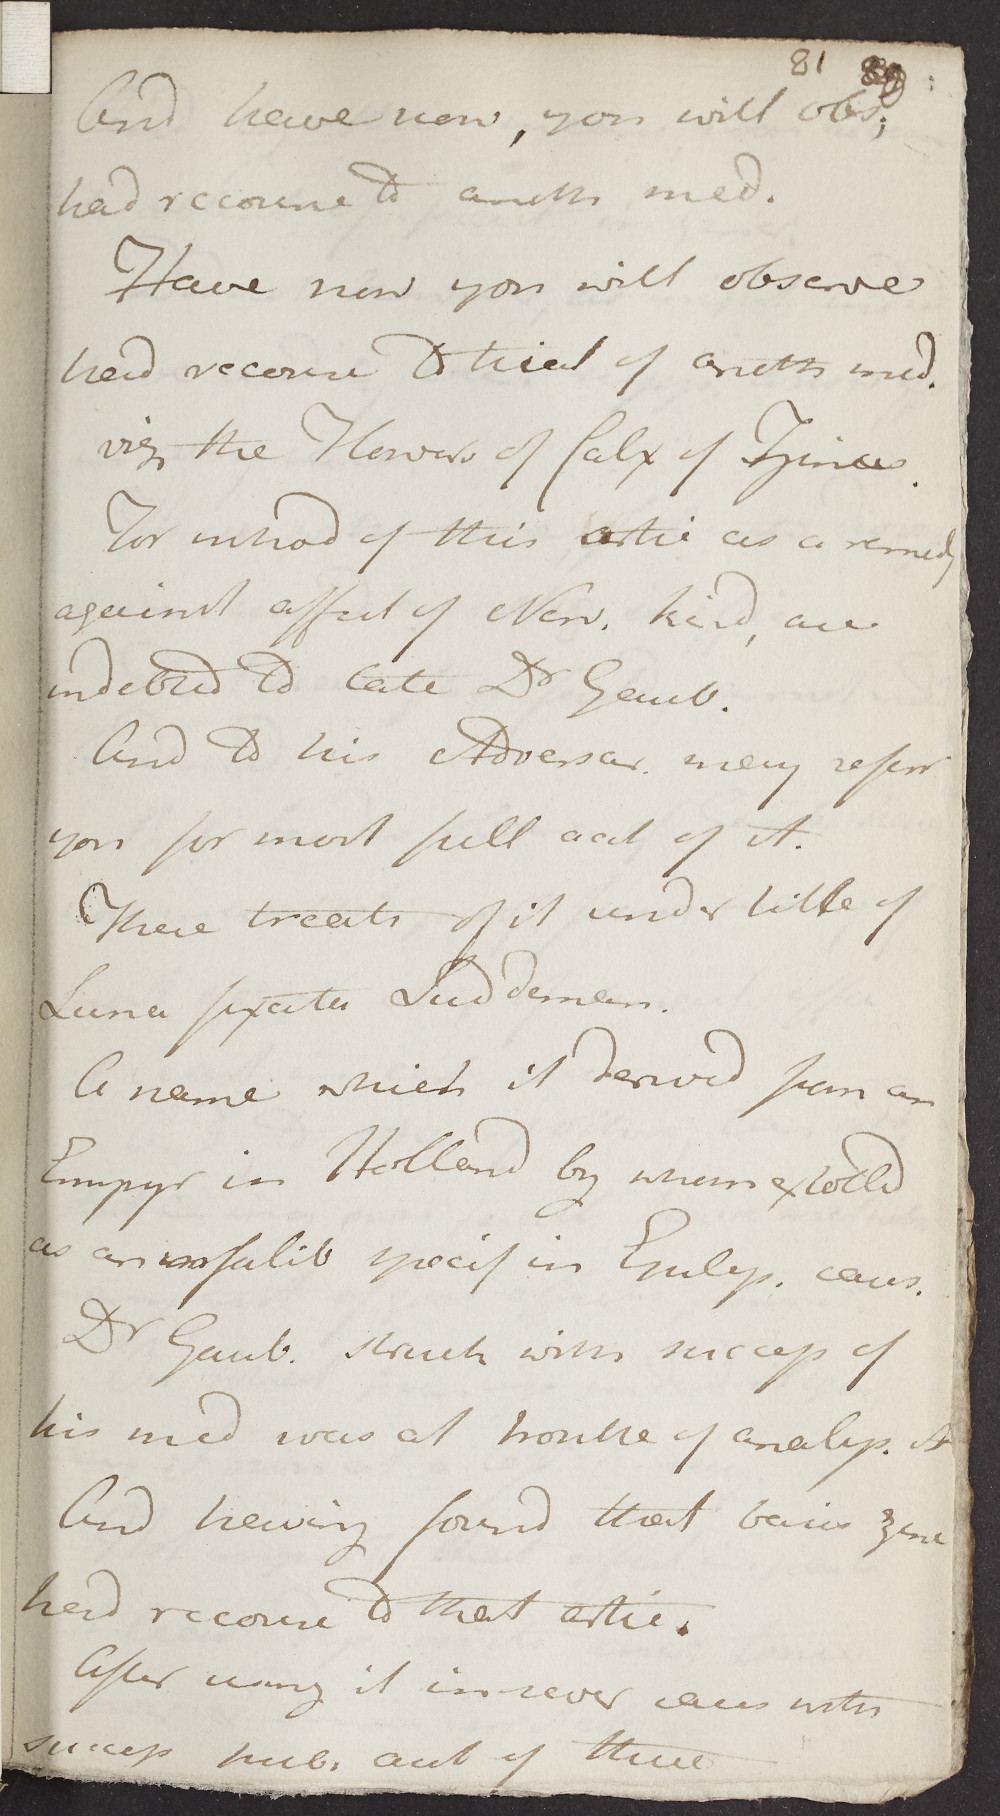 81
And have now, you will obs;
had recourse to anoth med.
Have now you will observe
had recourse to trial of anoth med.
viz the Flowers of Calx of Zincs.
For introd of this artic as a remedy
against affect of Nerv. kind, are
indebted to late Dr Gaub.
And to his Adversar. may referr
you for most full acct of it.
There treats of it under title of
Luna fixata Luddeman.
A name which it derived from an
Empyr in Holland by whom extolld
as an infalib specif in Epilep. cases.
Dr Gaub. struck with success of
his med was at trouble of analys. it
And having found that basis zinc
had recourse to that artic.
After using it in sever cases with
success pub. acct of these